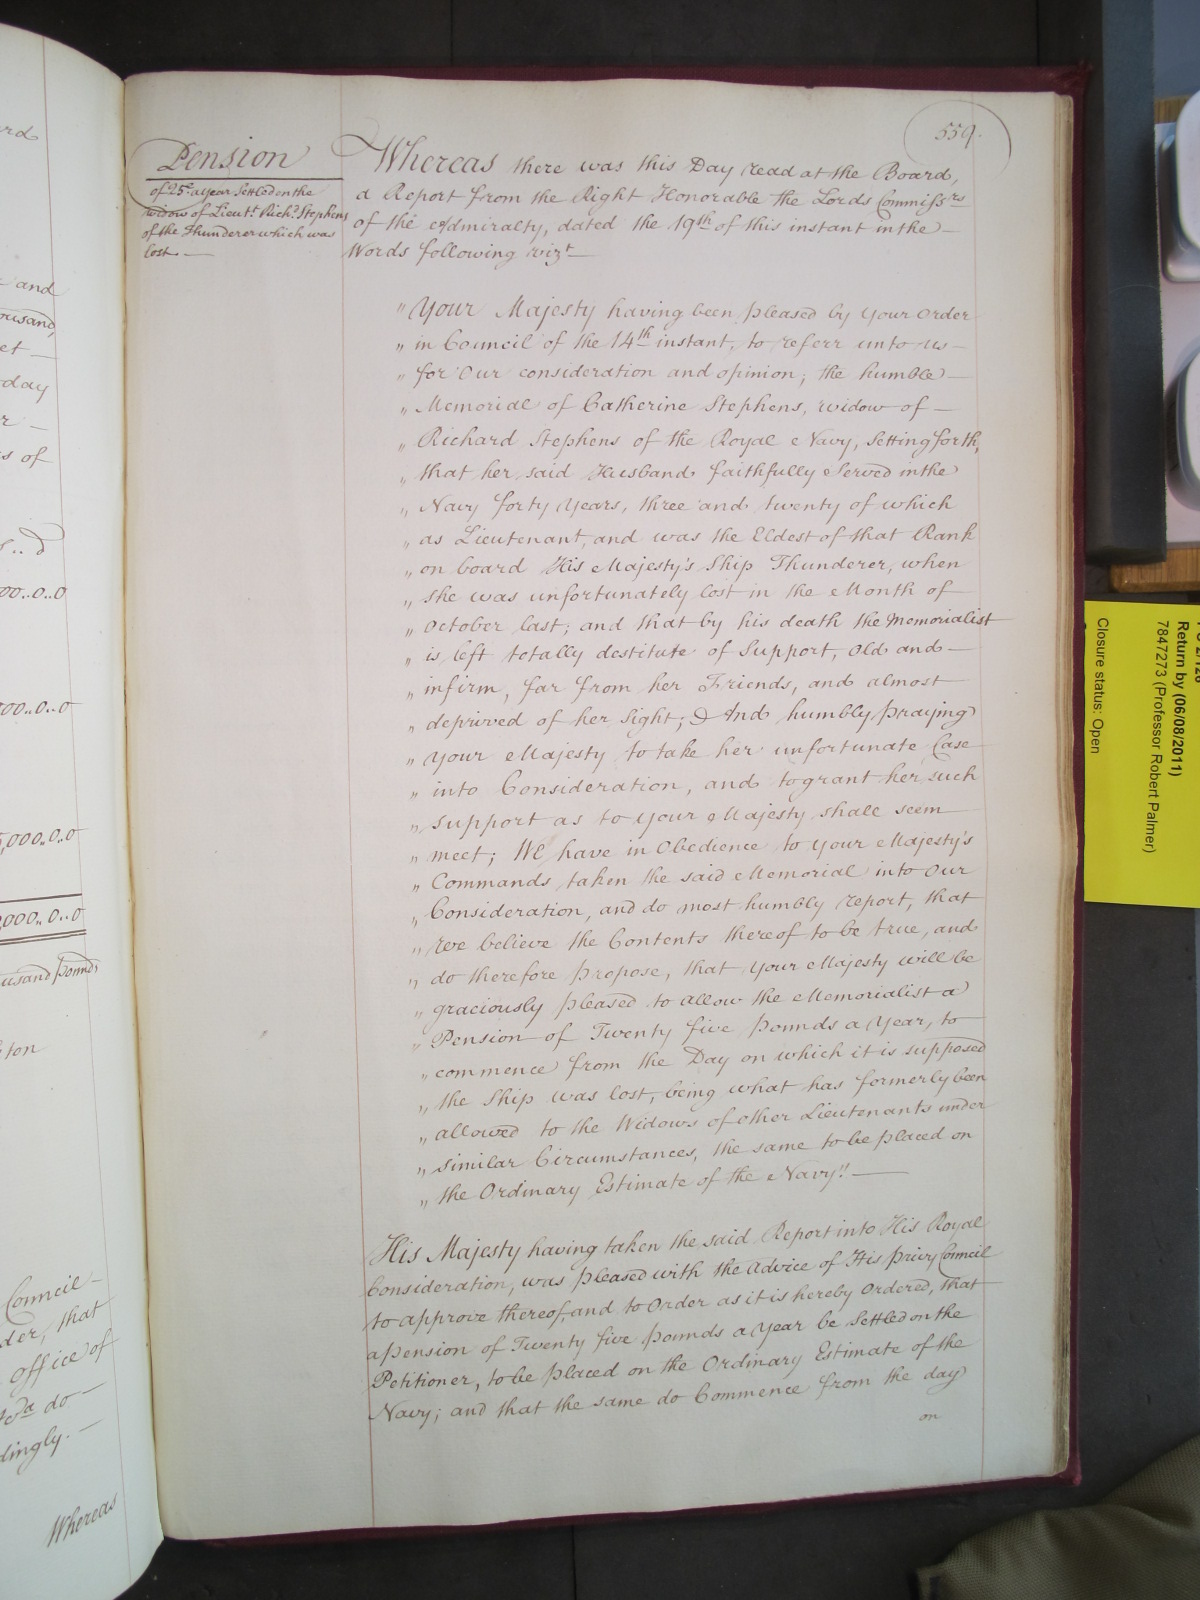 559.
Pension
of 25£ a year Settled on the
widow of Lieut.t Rich.d Stephens
of the Thunderer which was
lost. —
Whereas there was this Day read at the Board,
a Report from the Right Honorable the Lords Commiss.rs
of the Admiralty, dated the 19th of this instant in the —
Words following vizt —
" Your Majesty having been pleased by Your Order
" in Council of the 14th instant, to referr unto us —
" for Our consideration and opinion; the humble —
" Memorial of Catherine Stephens, widow of —
" Richard Stephens of the Royal Navy, Setting forth,
" that her said Husband faithfully Served in the
" Navy forty Years, three and twenty of which
" as Lieutenant, and was the Eldest of that Rank
" on board His Majesty's Ship Thunderer, when
" she was unfortunately lost in the Month of
" October last; and that by his death the Memorialist
" is left totally destitute of Support, Old and —
" infirm, far from her Friends, and almost
" deprived of her Sight; And humbly praying
" Your Majesty to take her unfortunate Case
" into Consideration, and to grant her such
" support as to Your Majesty shall seem
" meet; We have in Obedience to Your Majesty's
" Commands taken the said Memorial into Our
" Consideration, and do most humbly report, that
" We believe the Contents thereof to be true, and
" do therefore propose, that Your Majesty will be
" graciously pleased to allow the Memorialist a
" Pension of Twenty five Pounds a Year, to
" commence from the Day on which it is supposed
" the Ship was lost, being what has formerly been
" allowed to the Widows of other Lieutenants under
" similar Circumstances, the same to be placed on
" the Ordinary Estimate of the Navy" —
His Majesty having taken the said Report into His Royal
Consideration, was pleased with the Advice of His Privy Council
to approve thereof, and to Order as it is hereby Ordered, that
a Pension of Twenty five Pounds a Year be Settled on the
Petitioner, to be placed on the Ordinary Estimate of the
Navy; and that the same do Commence from the day
on
and
day
s of
00..0..0
00..0..0
,000..0..0
,000..0..0
usand pounds
ton
Council —
der, that
office of
do —
dingly. —
Whereas
Return by (06/08/2011)
7847273 (Professor Robert Palmer)
Closure status: Open